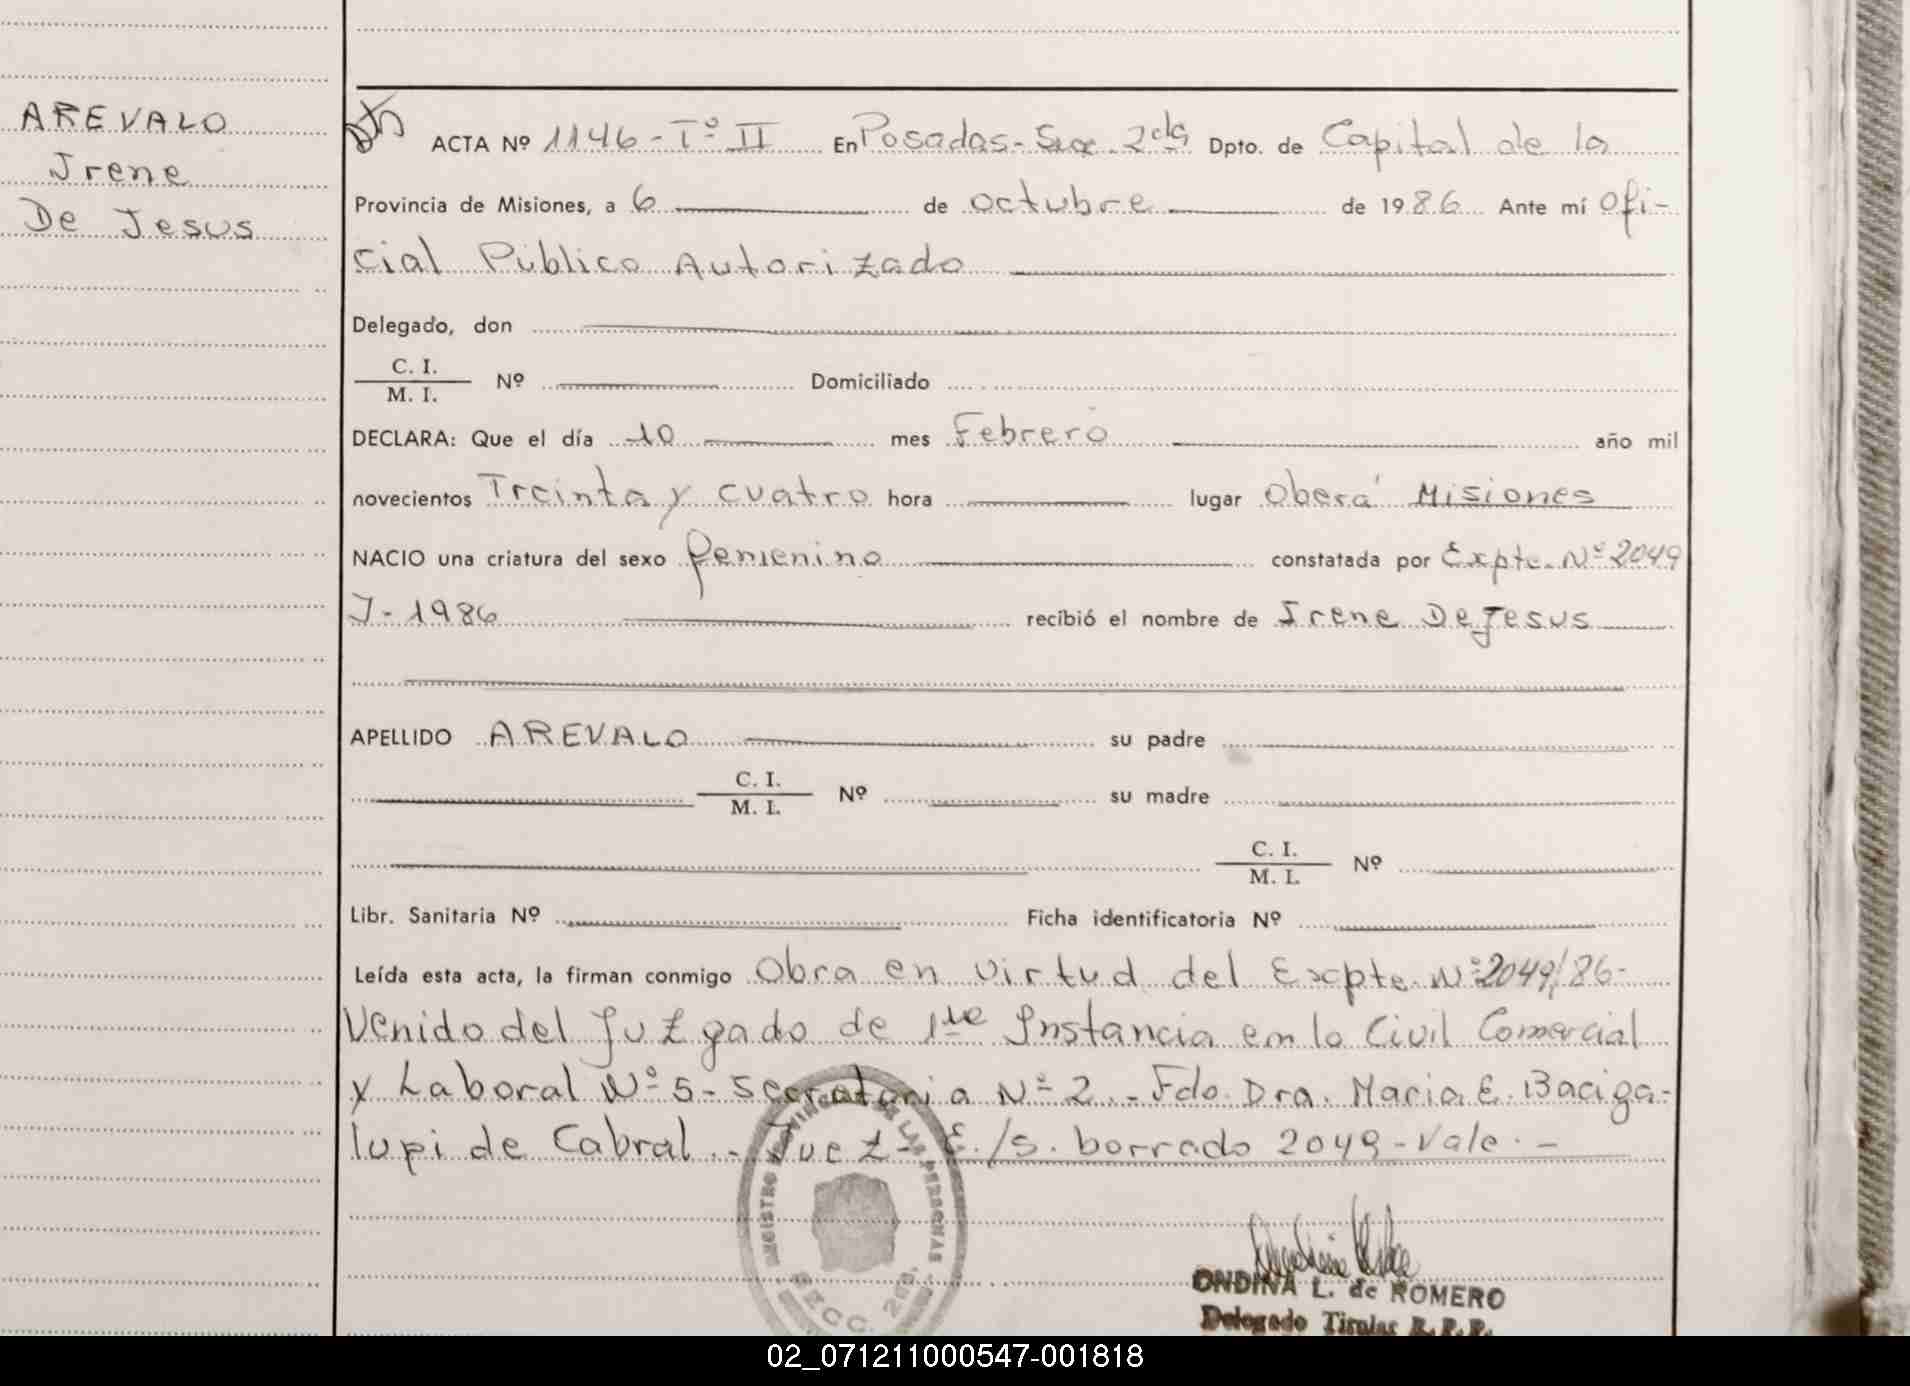 AREVALO
Irene
De Jesus
ACTA Nº 1146 - Tº II En Posadas - Secc. 2da Dpto. de Capital de la
Provincia de Misiones, a 6 de octubre de 1986 Ante mí Ofi-
cial Público Autorizado
Delegado, don
C. I.
M. I. Nº Domiciliado
DECLARA: Que el día 10 mes Febrero año mil
novecientos Treinta y cuatro hora lugar Oberá Misiones
NACIO una criatura del sexo femenino constatada por Expte. Nº 2049
J - 1986 recibió el nombre de Irene De Jesus
APELLIDO AREVALO su padre
C. I.
M. I. Nº su madre
C. I.
M. I. Nº
Libr. Sanitaria Nº Ficha identificatoria Nº
Leída esta acta, la firman conmigo Obra en virtud del Excpte. Nº 2049/86-
Venido del Juzgado de 1ra Instancia en lo Civil Comercial
y Laboral Nº 5 - Secretaria Nº 2 - Fdo. Dra. Maria E. Baciga-
lupi de Cabral. - Juez - E./s. borrado 2049 - Vale. -
REGISTRO PROVINCIAL DE LAS PERSONAS
SECC. 2da.
ONDINA L. de ROMERO
Delegado Titular R.P.P.
02_071211000547-001818